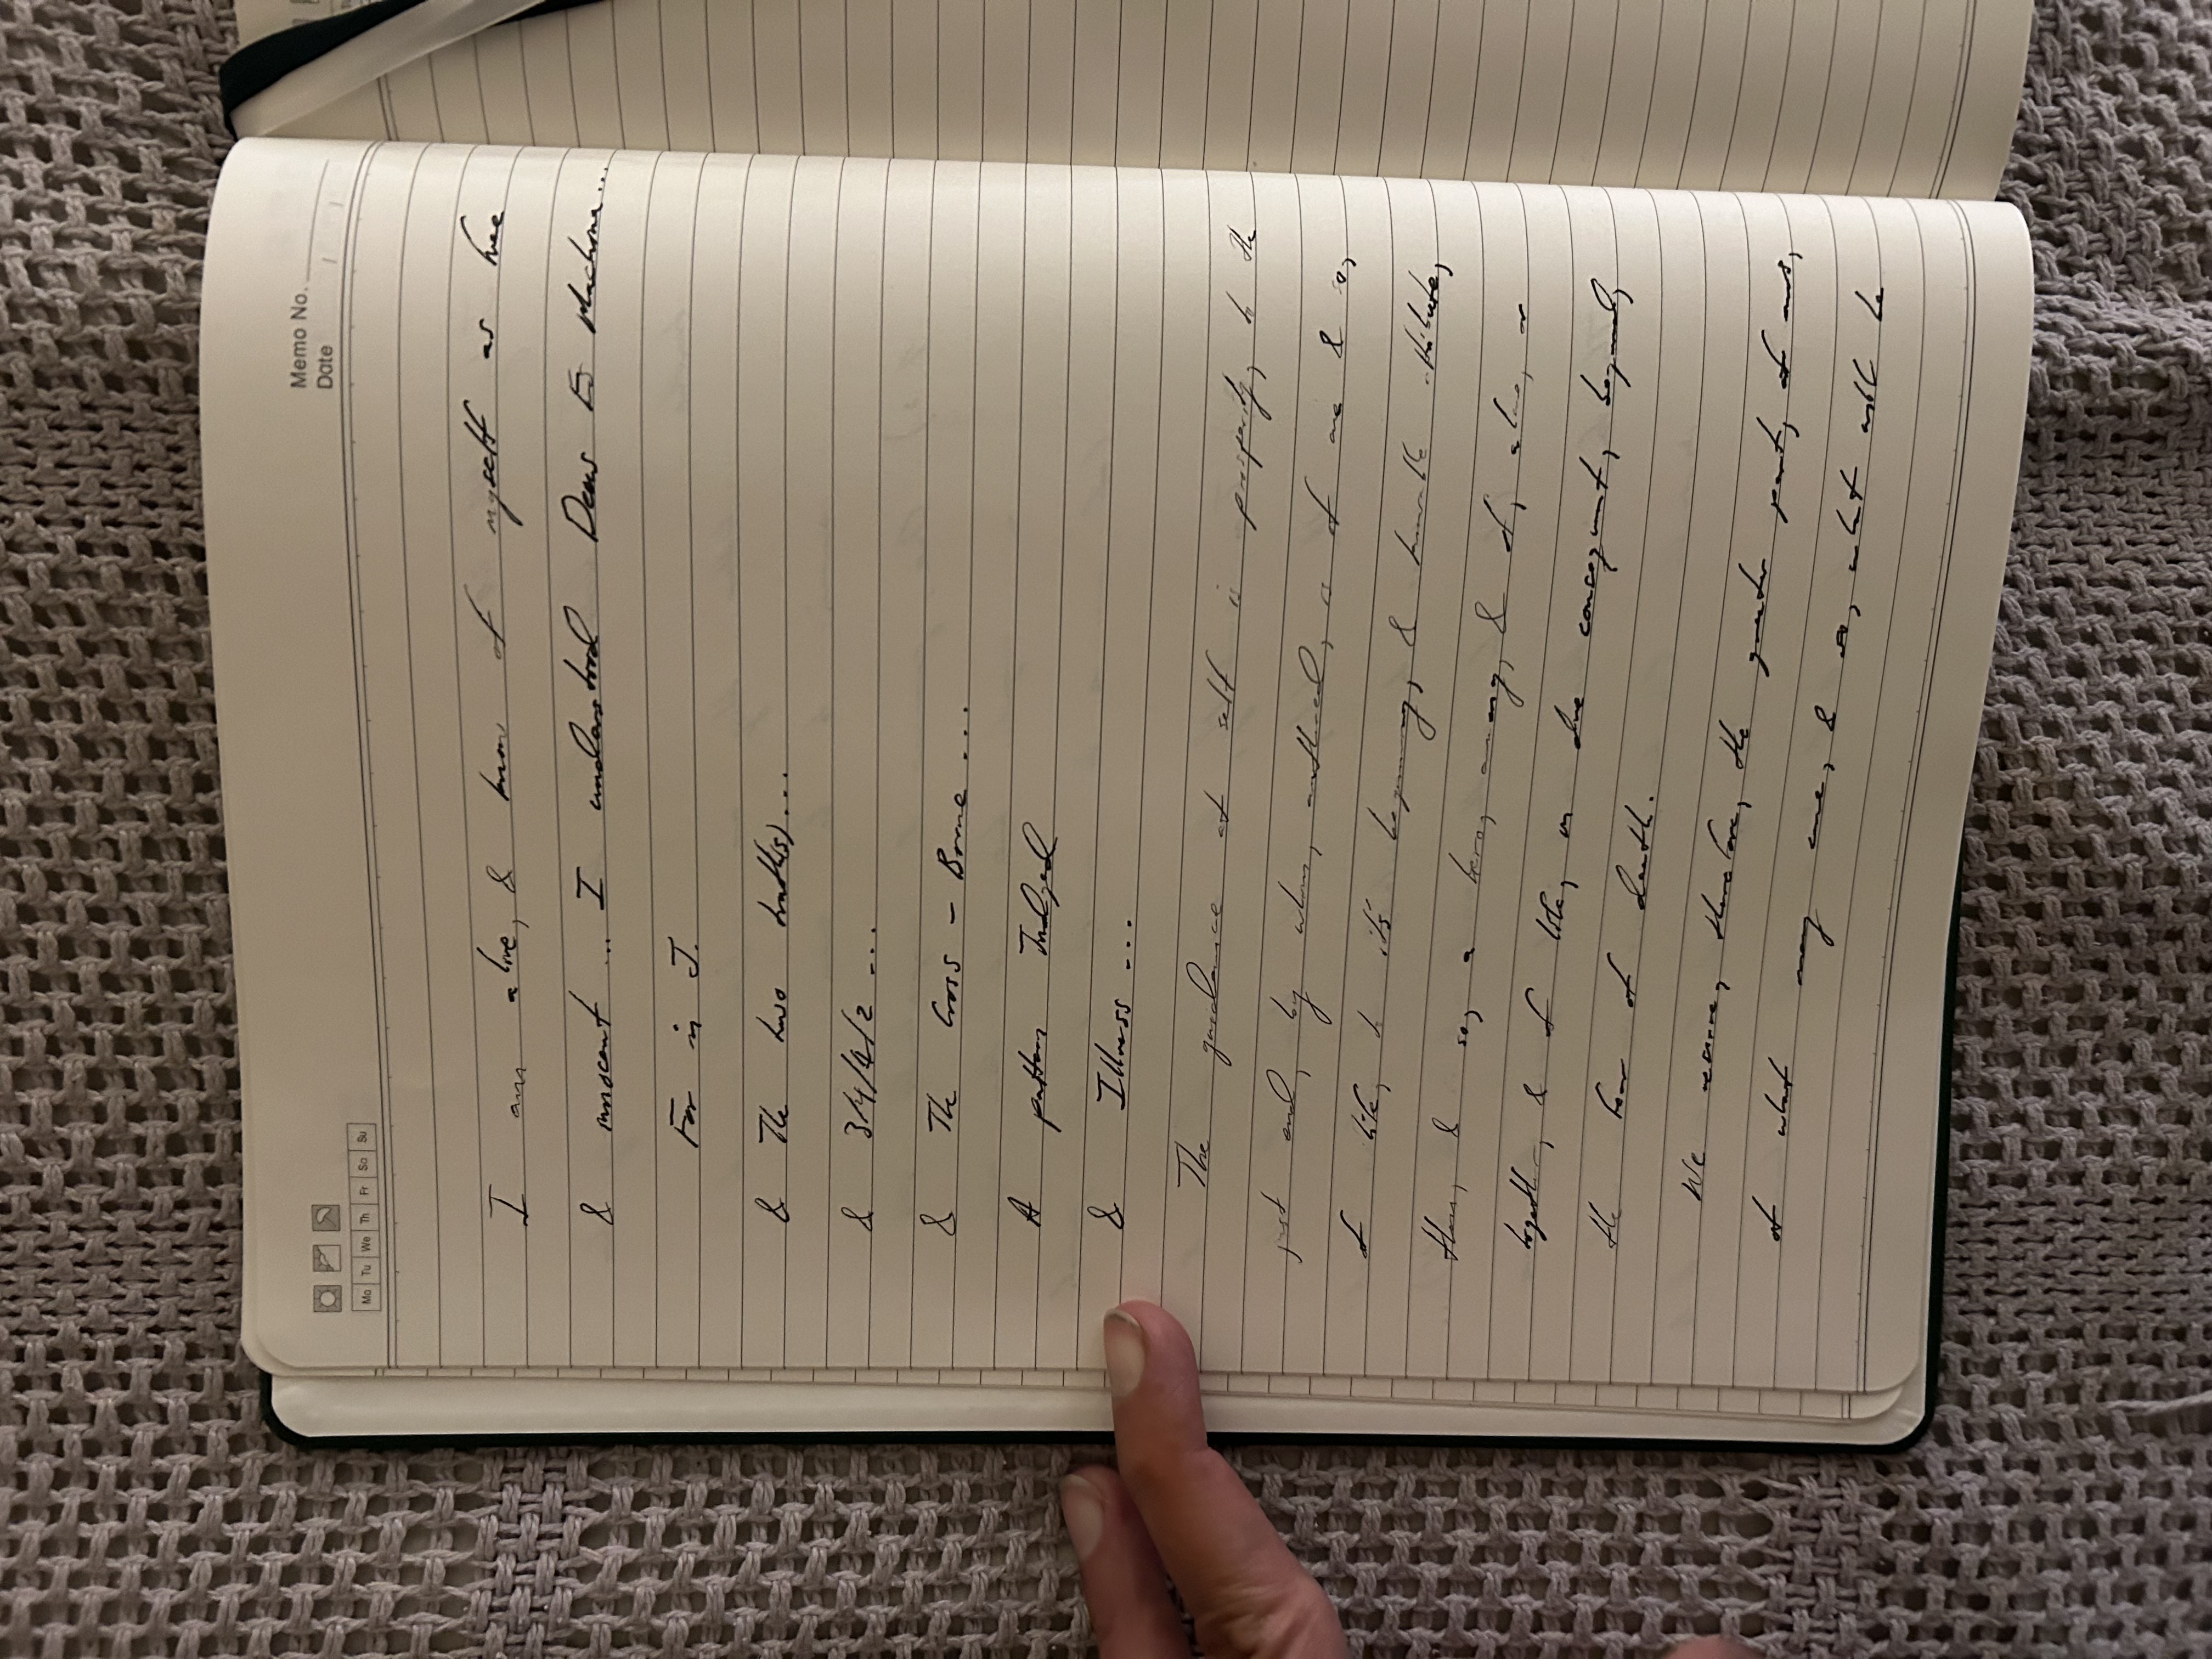 Memo No.
Date / /
Mo Tu We Th Fr Sa Su
I am alive, & know of myself as free
& innocent ... I understood Deus Ex Machina...
For in J.
& The two truth(s)...
& 3/4/4/2 ...
& The Cross - Borne ...
A pattern Judged
& Illness ...
The guidance of self is prosperity, to the
just and, by when, authored, is of me & so,
of life, to it's beginning, & humble attribute,
then, & so, a hero, among, & of, alas, a
together, & of life, in due consequent, beyond,
the hour of death.
We, therefore, the greater part, of
of what may come, & so, what will be